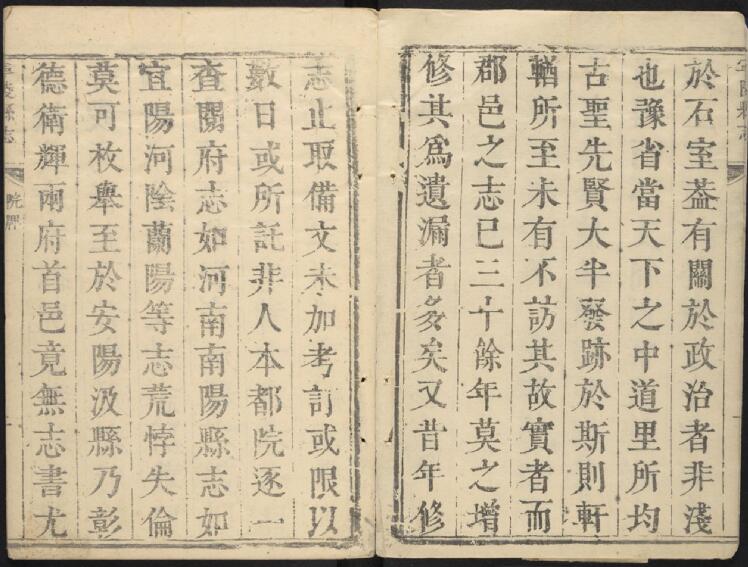 於石室葢有關於政治者非淺
也豫省當天下之中道里所均
古聖先賢大半發跡於斯則軒
輶所至未有不訪其故實者而
郡邑之志已三十餘年莫之增
修其爲遺漏者多矣又昔年修
志止取備文未加考訂或限以
數日或所託非人本都院逐一
查閱府志如河南南陽縣志如
宜陽河陰蘭陽等志荒悖失倫
莫可枚舉至於安陽汲縣乃彰
德衛輝兩府首邑竟無志書尤
陵縣志
院牌